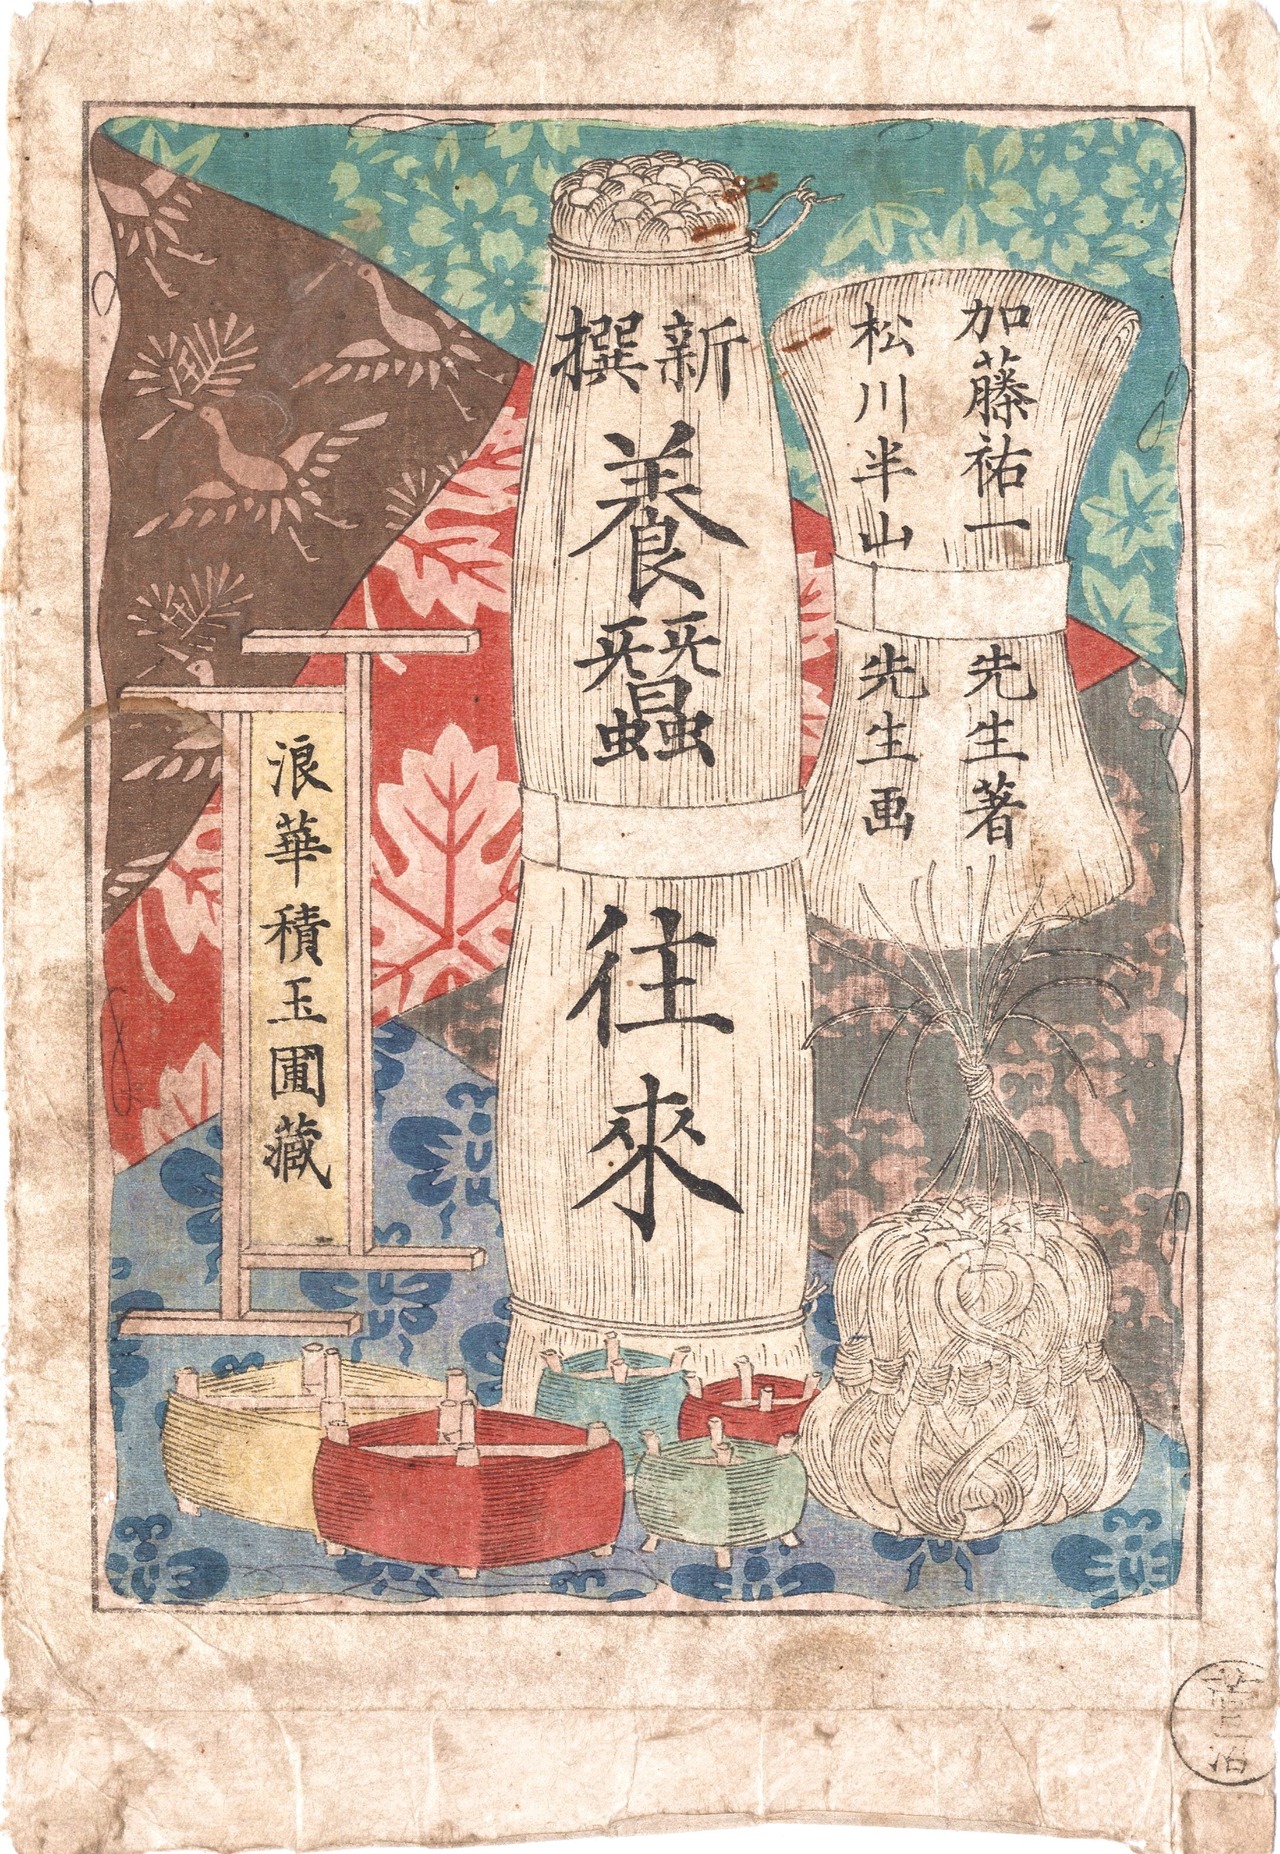 加藤祐一先生著
松川半山先生画
新撰
養蠶往來
浪華積玉圃藏